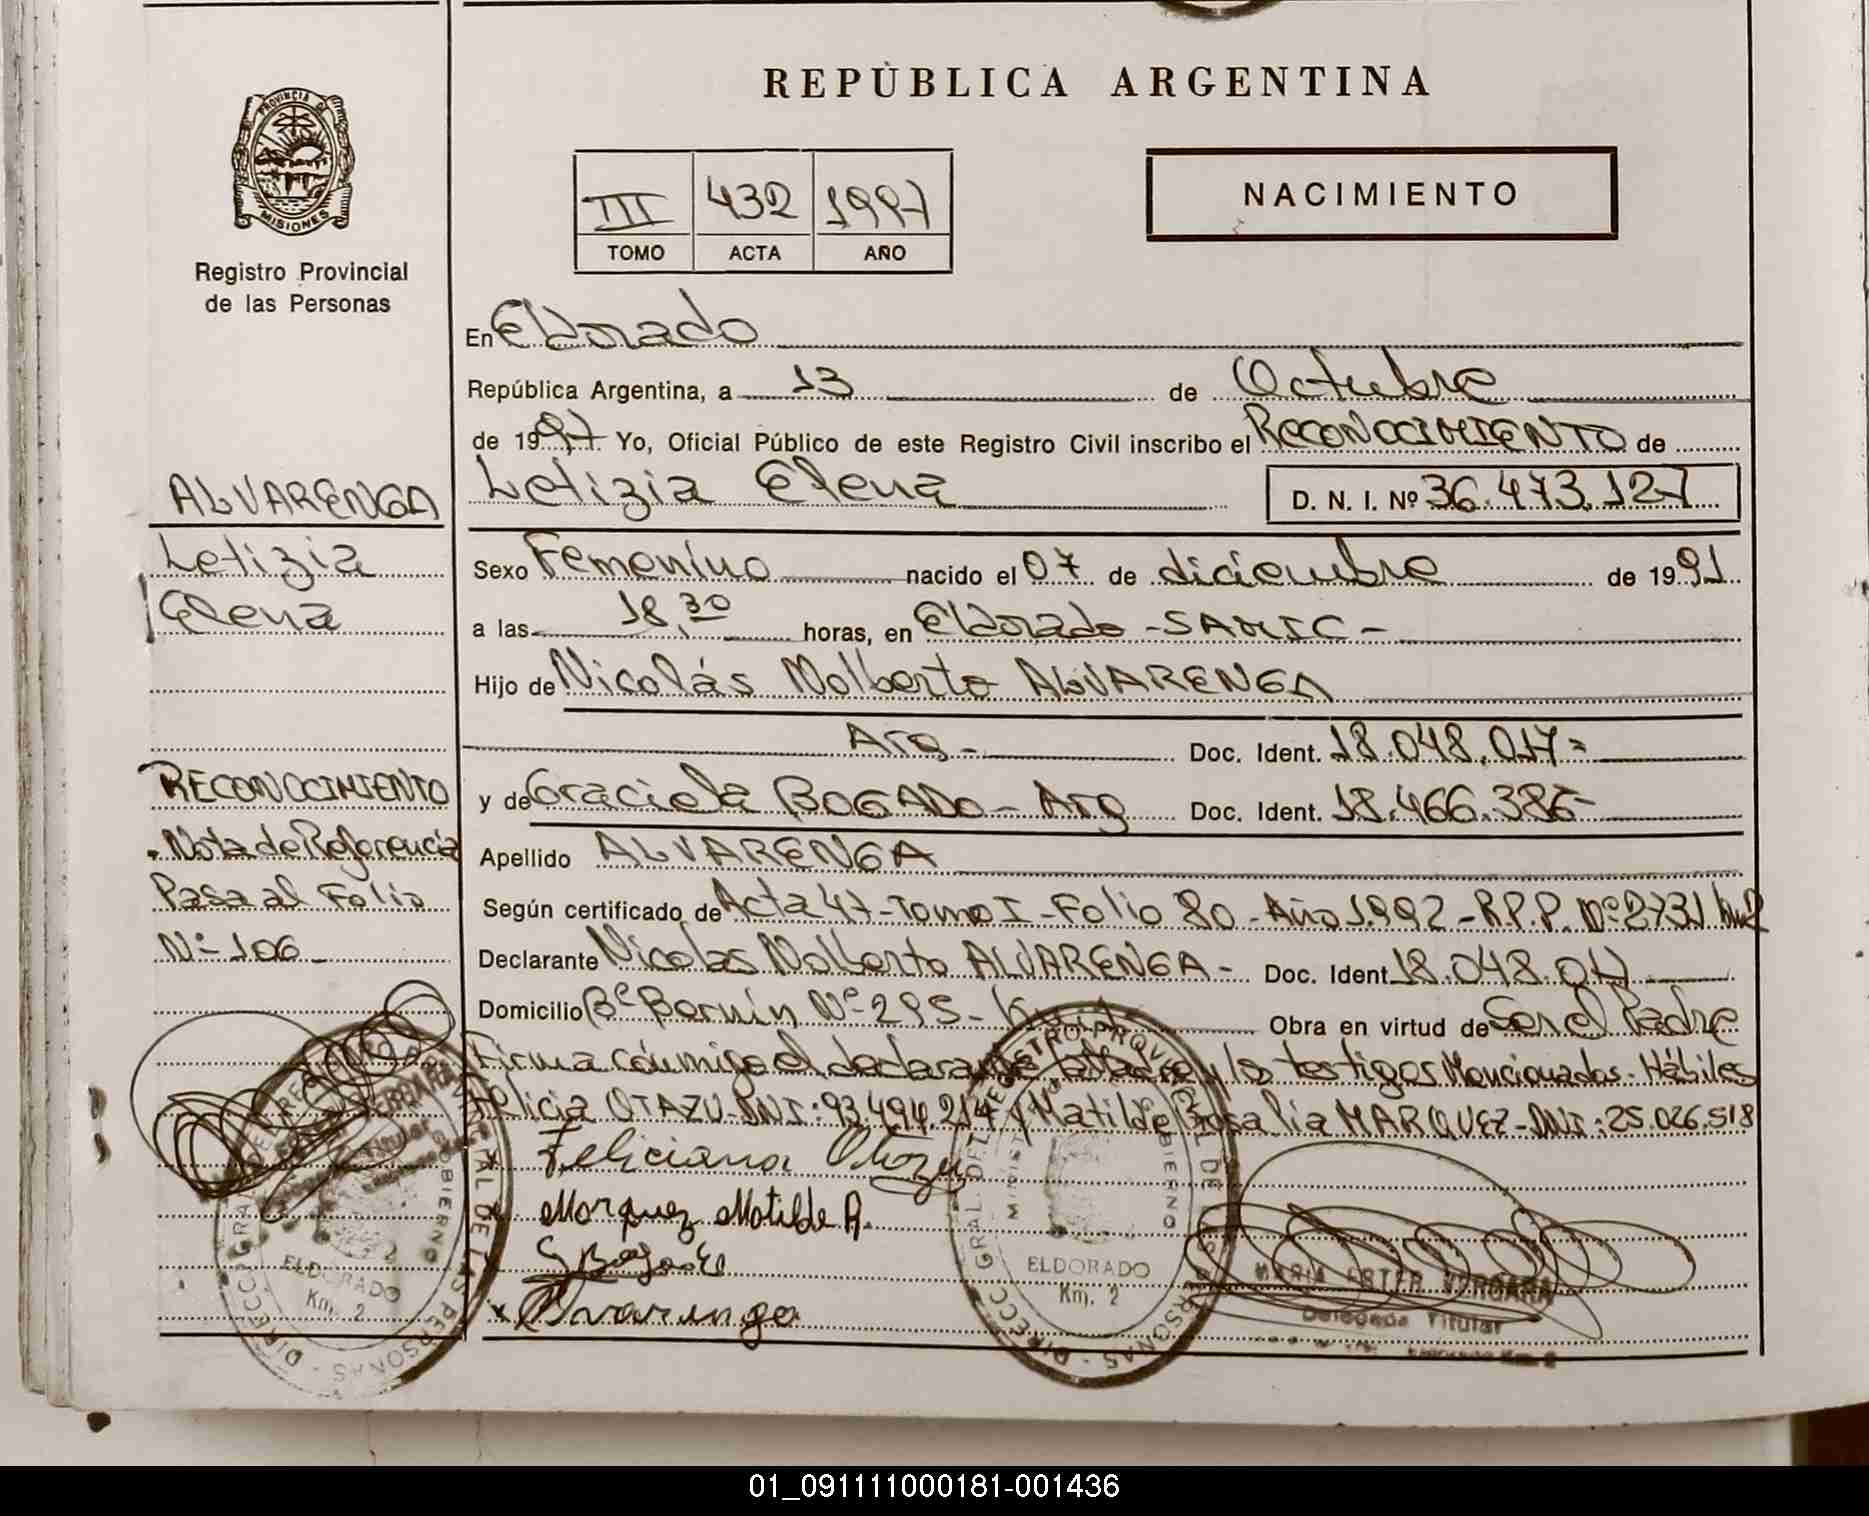 REPÙBLICA ARGENTINA
PROVINCIA DE
MISIONES
Registro Provincial
de las Personas
III 432 1997
TOMO ACTA AÑO
NACIMIENTO
En Eldorado
República Argentina, a 13 de Octubre
de 1997 Yo, Oficial Público de este Registro Civil inscribo el RECONOCIMIENTO de
Letizia Elena D. N. I. Nº 36.473.127
Sexo Femenino nacido el 07 de diciembre de 1991
a las 18,30 horas, en Eldorado - SAMIC -
Hijo de Nicolás Nolberto ALVARENGA
Arg - Doc. Ident. 18.048.017 =
y de Graciela BOGADO - Arg Doc. Ident. 18.466.386 -
Apellido ALVARENGA
Según certificado de Acta 47 - Tomo I - Folio 80 - Año 1.992 - R.P.P. Nº 2731 km2
Declarante Nicolas Nolberto ALVARENGA - Doc. Ident. 18.048.017
Domicilio Bº Bernin Nº 295 - Obra en virtud de Ser el Padre
Firma conmigo el declarante y los testigos Mencionados - Hábiles
Felicia OTAZU - DNI: 93.494.214 y Matilde Rosalia MARQUEZ - DNI: 25.026.518
Feliciana Otazu
Marquez Matilde R.
x Alvarenga
ALVARENGA
Letizia
Elena
RECONOCIMIENTO
. Nota de Referencia
Pasa al Folio
Nº 106
DIRECC. GRAL. DEL REGISTRO PROVINCIAL DE LAS PERSONAS
ELDORADO
Km. 2
DIRECC. GRAL. DEL REGISTRO PROVINCIAL DE LAS PERSONAS
ELDORADO
Km. 2
MARIA ESTER VERGARA
Delegada Titular
01_091111000181-001436